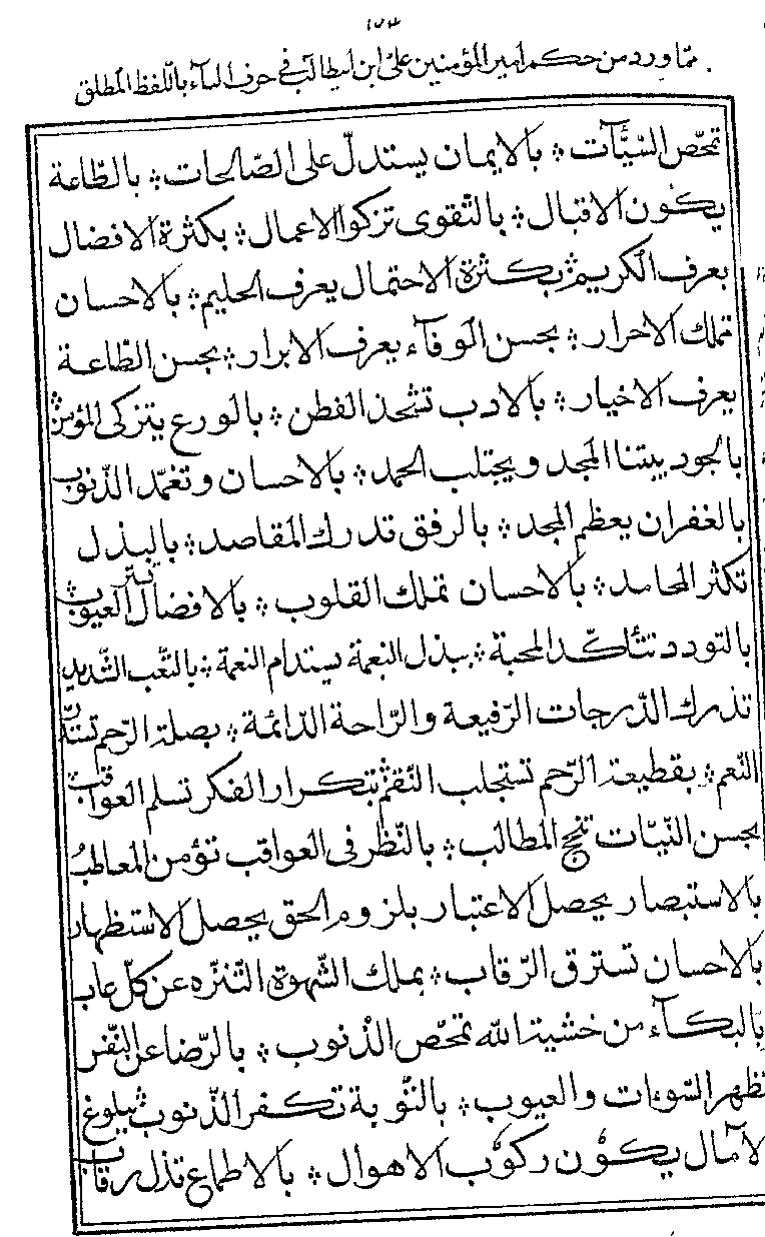 ١٥٣
مما ورد من حكم امير المؤمنين علىّ ابن ابيطالب فى حرف الباء باللّفظ المطلق
تمحّص السّيّآت ؛ بالايمان يستدلّ على الصّالحات ؛ بالطّاعة
يكون الاقبال ؛ بالتّقوى تزكوا الاعمال ؛ بكثرة الافضال
يعرف الكريم ؛ بكثرة الاحتمال يعرف الحليم ؛ بالاحسان
تملك الاحرار ؛ بحسن الوفآء يعرف الابرار ؛ بحسن الطّاعة
يعرف الاخيار ؛ بالادب تشحذ الفطن ؛ بالورع يتزكى المؤمن ؛
بالجود يبتنا المجد ويجتلب الحمد ؛ بالاحسان وتغمّد الذّنوب
بالغفران يعظم المجد ؛ بالرفق تدرك المقاصد ؛ بالبذل
تكثر المحامد ؛ بالاحسان تملك القلوب ؛ بالافضال تستر العيوب
بالتودد تتأكّد المحبة ؛ ببذل النعمة يستدام النعمة ؛ بالتّعب الشّديد
تدرك الدّرجات الرّفيعة والرّاحة الدّائمة ؛ بصلة الرّحم تستدرّ
النّعم ؛ بقطيعة الرّحم تستجلب النّقم ؛ بتكرار الفكر تسلم العواقب
بحسن النّيّات تنجح المطالب ؛ بالنّظر فى العواقب تؤمن المعاطب
بالاستبصار يحصل الاعتبار بلزوم الحق يحصل الاستظهار
بالاحسان تسترق الرّقاب ؛ بملك الشّهوة التّنزّه عن كلّ عاب
بالبكآء من خشية الله تمحّص الذّنوب ؛ بالرّضا عن النّفس
تظهر السّوءات والعيوب ؛ بالتّوبة تكفر الذّنوب ؛ ببلوغ
لآمال يكون ركوب الاهوال ؛ بالاطماع تذل رقاب